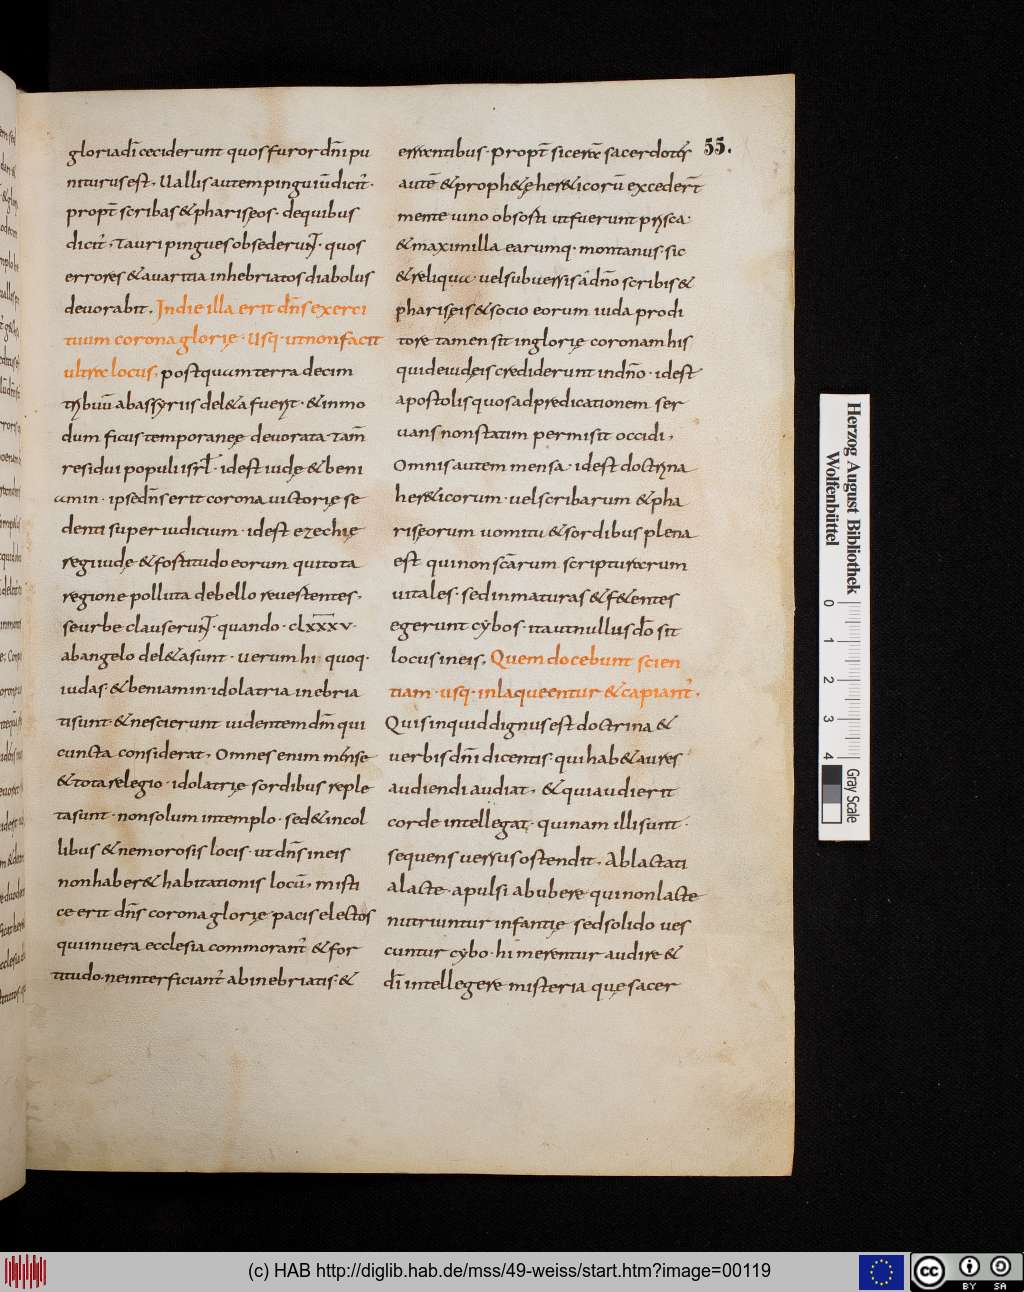 gloriadi ceciderunt quos furor dn̄i pu
niturus est. Uallis autem pinguiū dicit᷑.
propt̄ scribas & phariseos. de quibus
dicit᷑. Tauri pingues obsederunt. quos
errores & auaritia inhebriatos diabolus
deuorabit. In die illa erit dn̄s exerci
tuum corona glorię. Usq. ut non facit
ultra locus. postquam terra decim
tribuū ab assyriis deleta fuerit. & inmo
dum ficus temporaneę deuorata. Tam̄
residui populi isrl̄. id est iudę & beni
amin. ipse dn̄s erit corona uictorię se
denti super iudicium. id est ezechię
regi iudę & fostitudo eorum qui tota
regione polluta de bello reuestentes.
se urbe clauserunt. quando. clxxxv.
ab angelo deleta sunt. uerum hi quoq.
iudas & beniamin idolatria inebria
ti sunt & nescierunt uidentem dm̄ qui
cuncta considerat. Omnes enim mense
& tota relegio. idolatrię sordibus reple
ta sunt. non solum in templo. sed & in col
libus & nemorosis locis. ut dn̄s in eis
non haberet habitationis locū. misti
ce erit dn̄s corona glorię pacis electos
qui in uera ecclesia commorant᷑ & for
titudo. ne interficiant᷑ ab inebriatis. &
errantibus. propt̄ sicera sacerdotes 55.
autē & prophetę hereticorū exceder̄t
mente uino obsosti ut fuerunt prisca.
& maximilla earumq. montanus. sic
& reliqua uel subuersis a dn̄o scribis &
phariseis & socio eorum iuda prodi
tore tamen sit in glorię coronam his
qui de iudeis crediderunt in dn̄o. id est
apostolis quos ad predicationem ser
uans non statim permisit occidi.
Omnis autem mensa. id est doctrina
hereticorum. uel scribarum & pha
riseorum uomitu & sordibus plena
est qui non sc̄arum scripturarum
uitales. sed inmaturas & fetentes
egerunt cybos. ita ut nullus dō sit
locus in eis. Quem docebunt scien
tiam. usq. inlaqueentur & capiant᷑.
Quis inquid dignus est doctrina &
uerbis dn̄i dicentis. qui habet aures
audiendi audiat. & qui audierit
corde intellegat. quinam illi sunt.
sequens uersus ostendit. Ablactati
a lacte. apulsi ab ubere qui non lacte
nutriuntur infantię sed solido ues
cuntur cybo. hi merentur audire &
dī intellegere misteria quę sacer
Herzog August Bibliothek
Wolfenbüttel
0 1 2 3 4
Gray Scale
(c) HAB http://diglib.hab.de/mss/49-weiss/start.htm?image=00119
cc BY SA